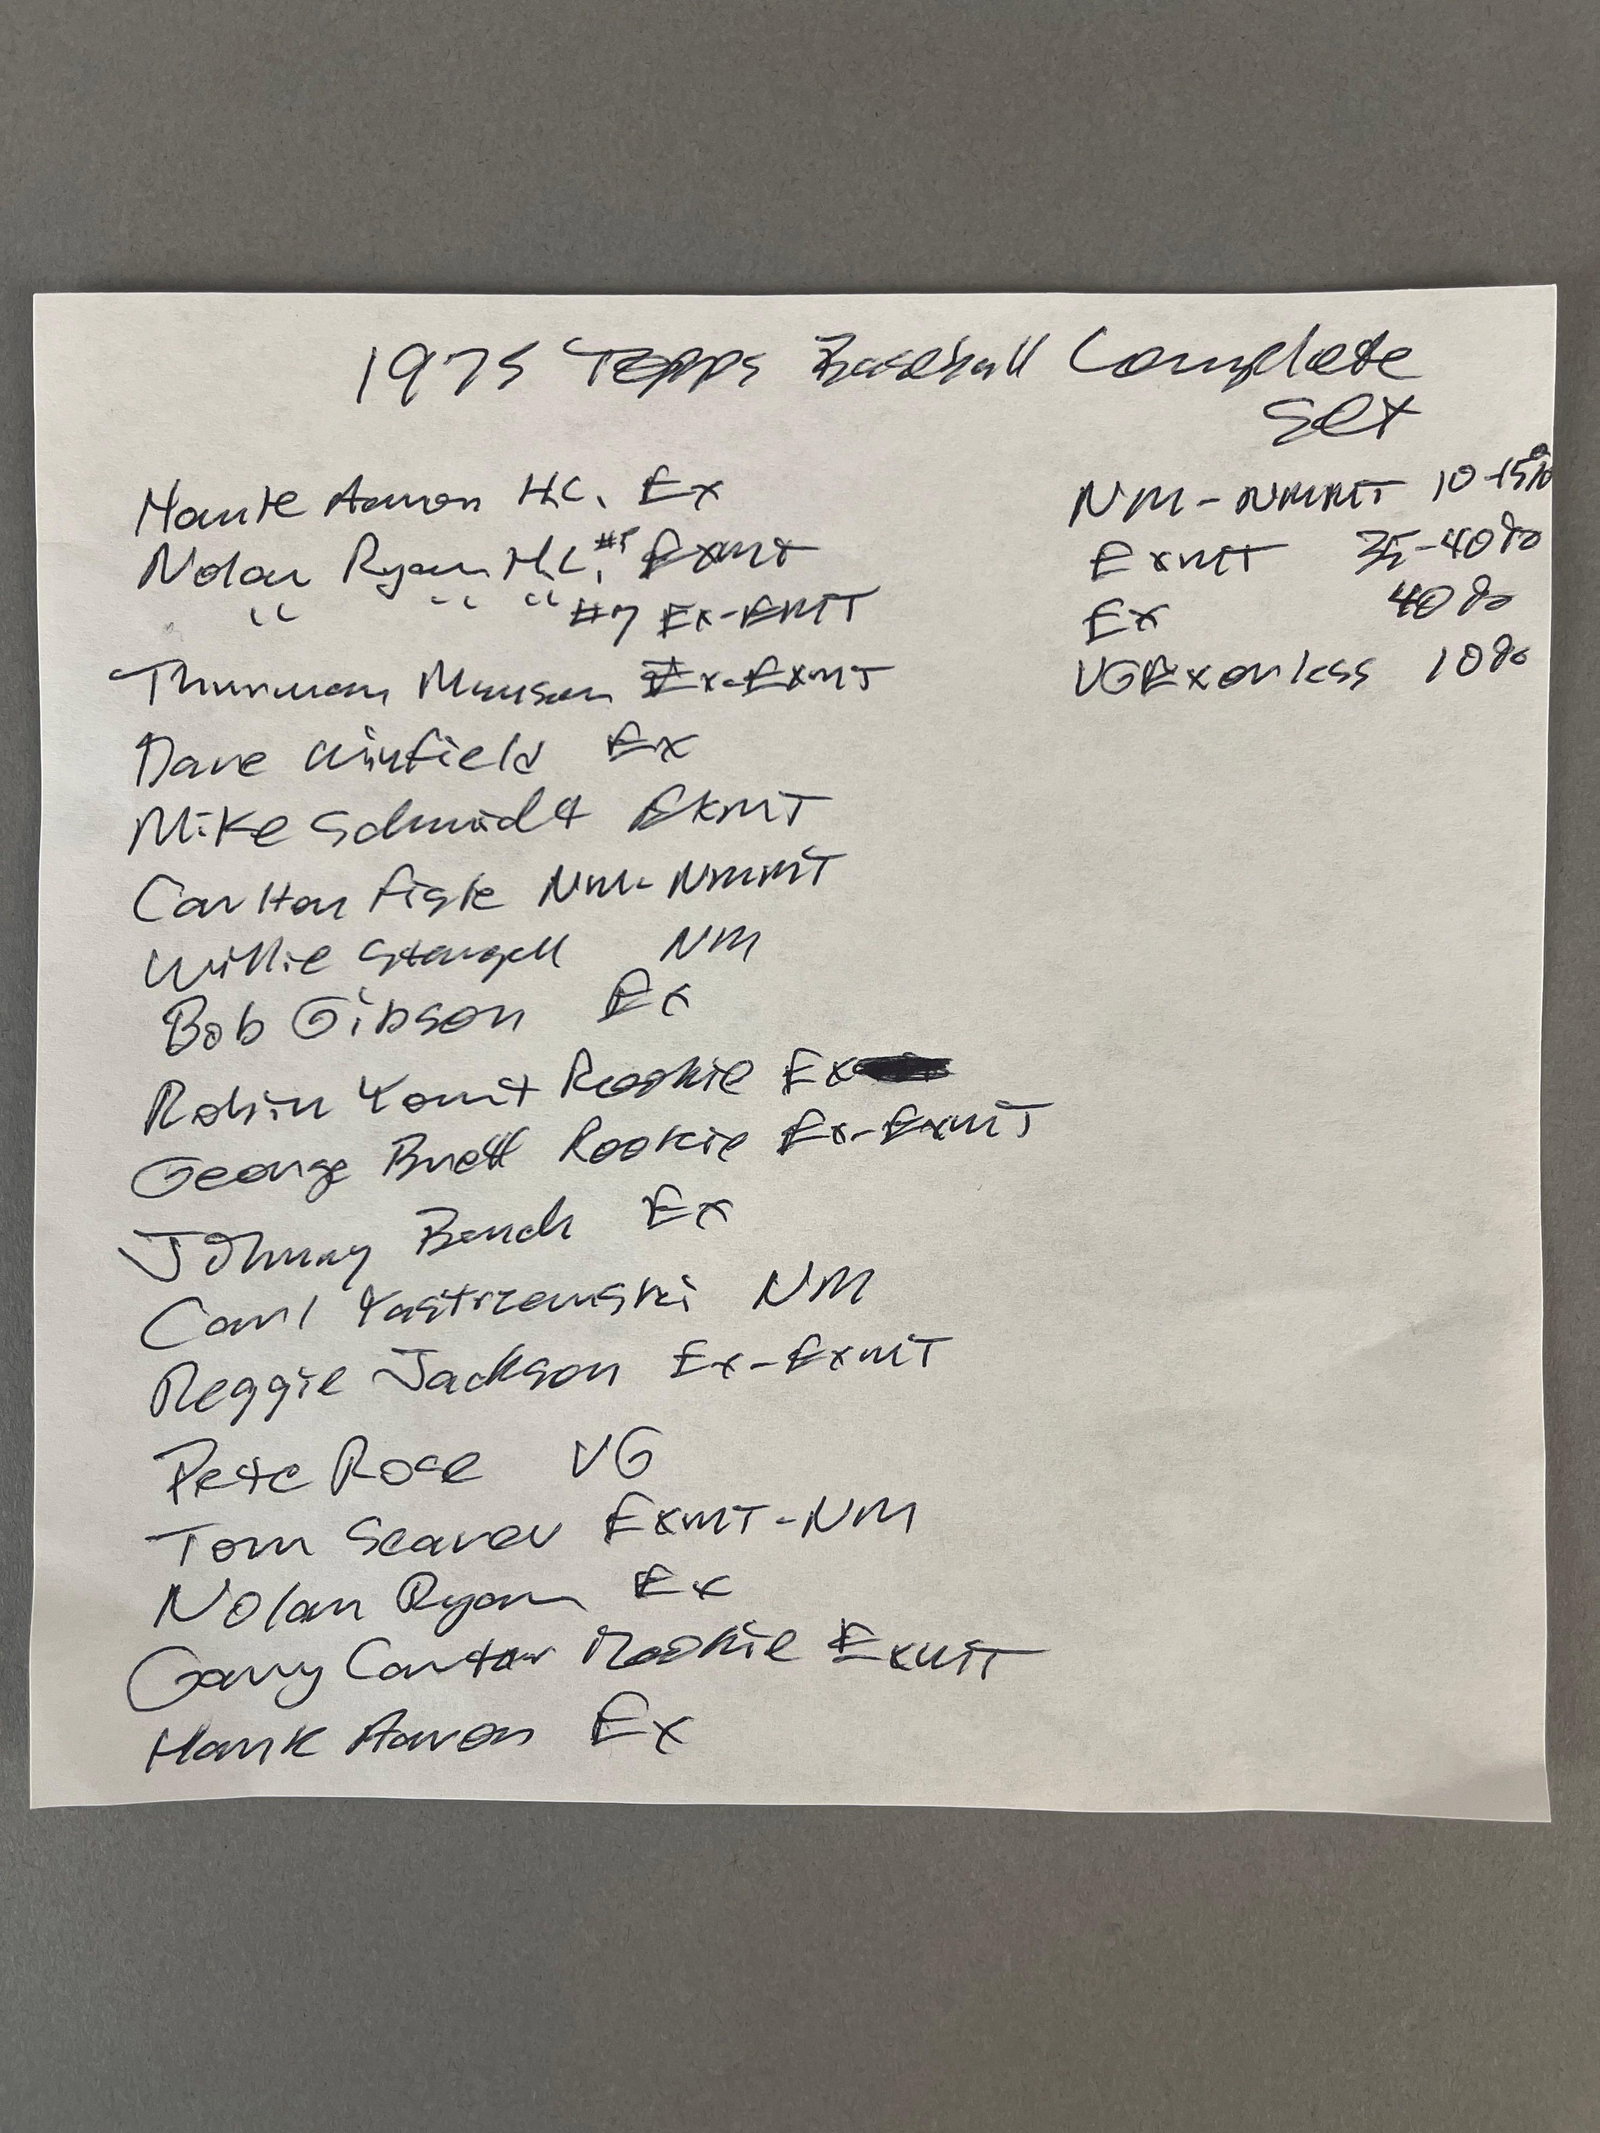 1975 Topps Baseball Complete
Set
Hank Aaron H.C. Ex
Nolan Ryan H.C. #5 ExMT
" " " #7 Ex-EMT
Thurman Munson Ex-ExMT
Dave Winfield Ex
Mike Schmidt ExMT
Carlton Fisk NM-NMMT
Willie Stargell NM
Bob Gibson Ex
Robin Yount Rookie Ex
George Brett Rookie Ex-ExMT
Johnny Bench Ex
Carl Yastrzemski NM
Reggie Jackson Ex-ExMT
Pete Rose VG
Tom Seaver ExMT-NM
Nolan Ryan Ex
Gary Carter Rookie ExMT
Hank Aaron Ex
NM-NMMT 10-15%
ExMT 35-40%
Ex 40%
VGEx or less 10%